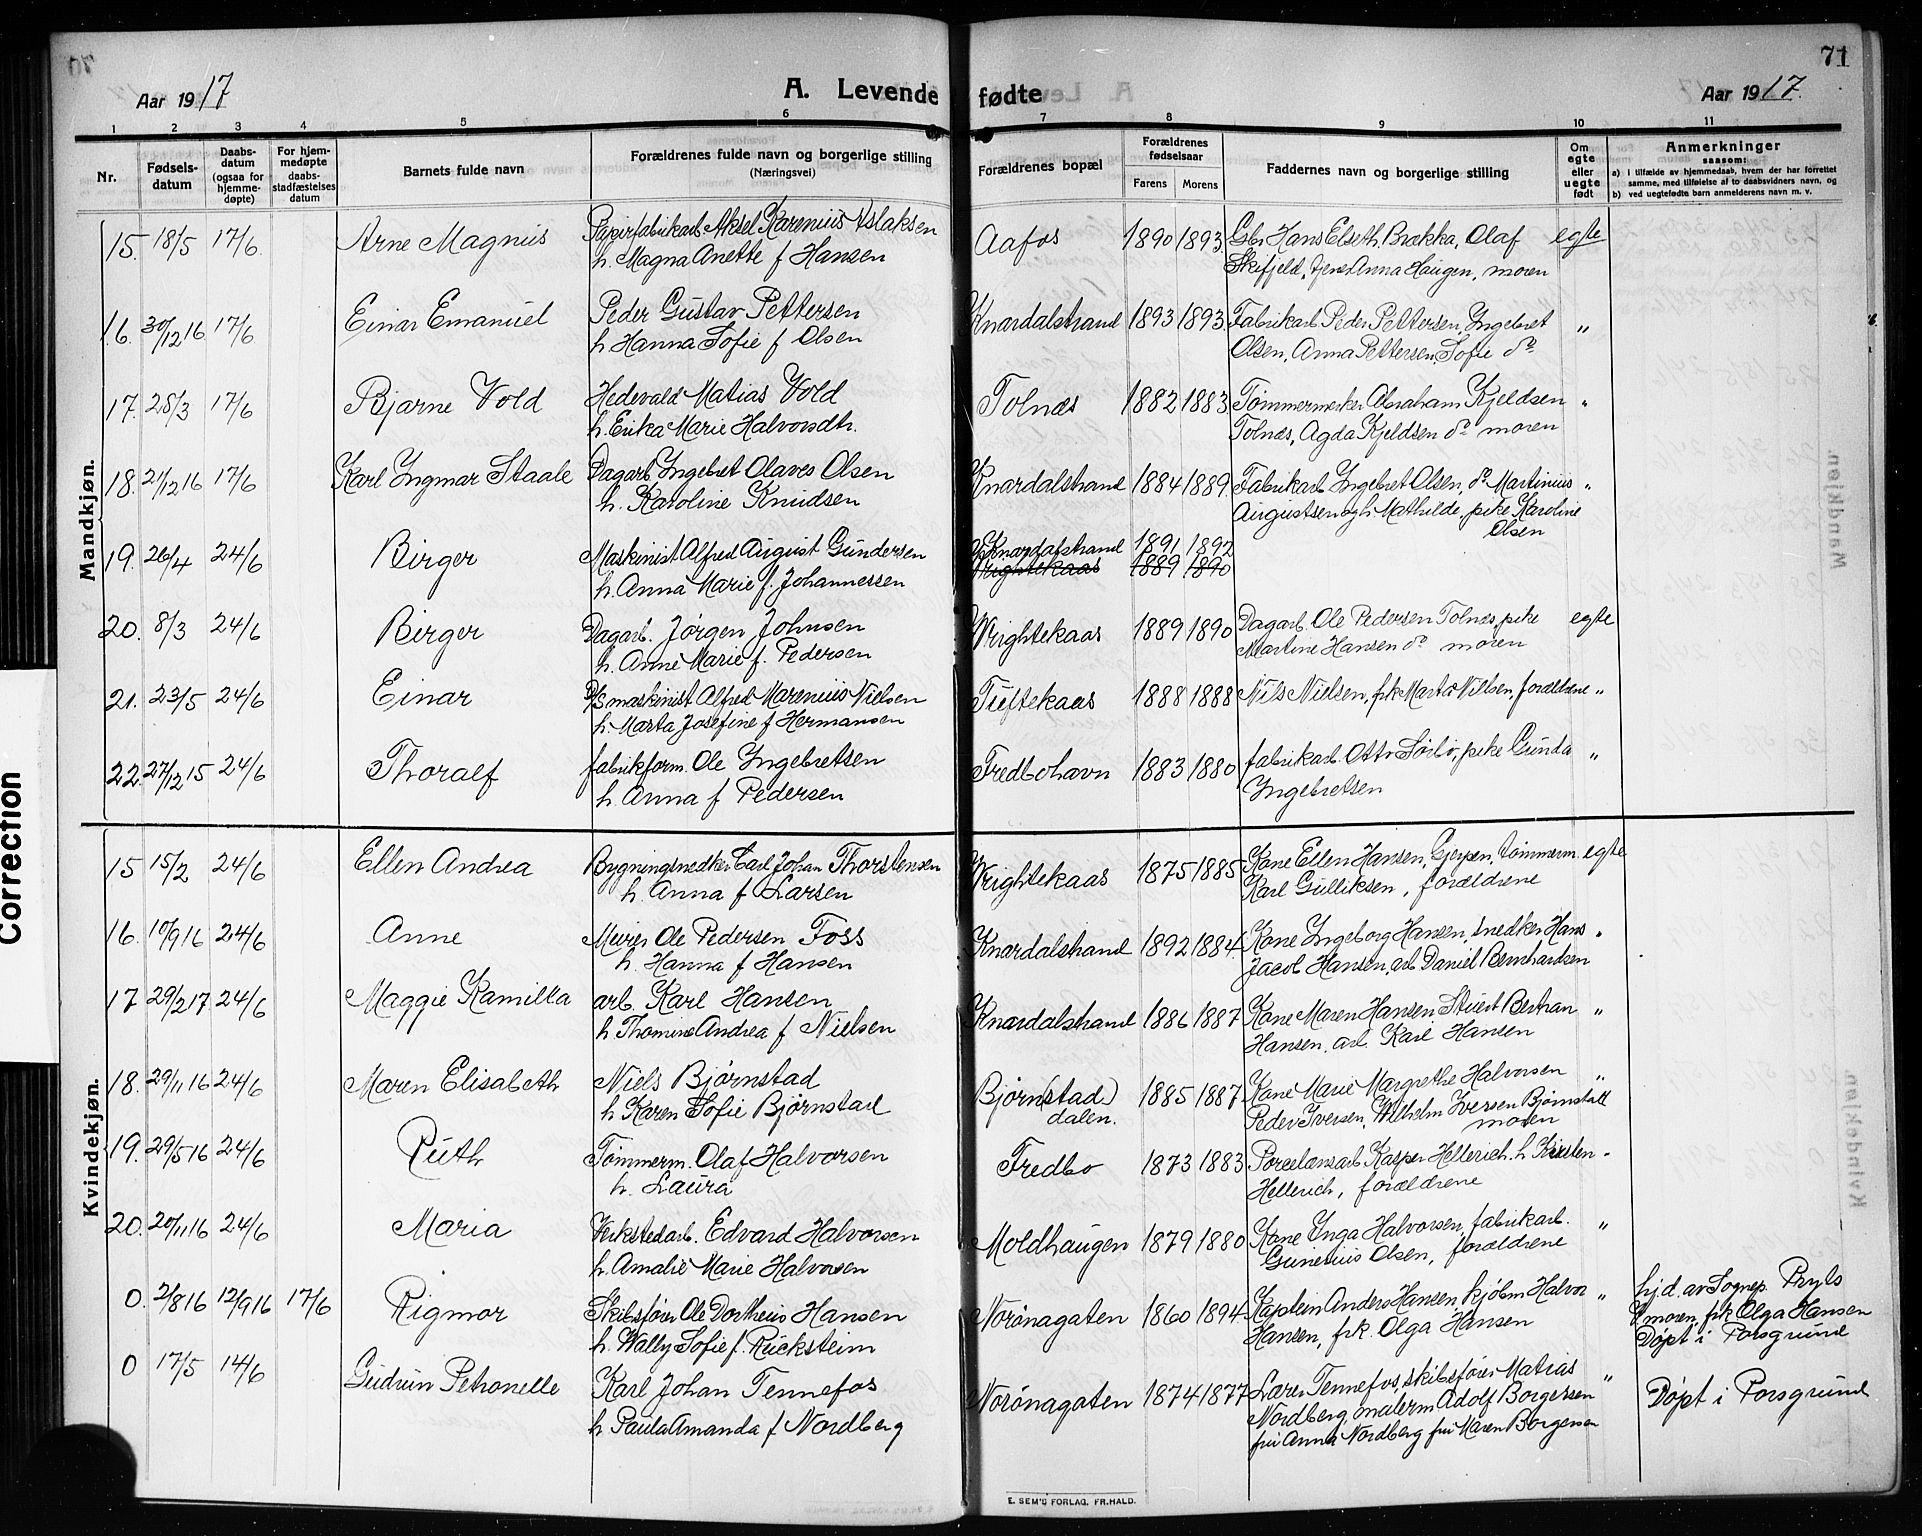 71
Aar 1917
A. Levende fødte
Aar 1917.
1 2 3 4 5 6 7 8 9 10 11
Nr.
Fødsels-
datum
Daabs-
datum
(ogsaa for
hjemme-
døpte)
For hjem-
medøpte
daabs-
stadfæstelses
datum
Barnets fulde navn
Forældrenes fulde navn og borgerlige stilling
(Næringsvei)
Forældrenes bopæl
Forældrenes
fødselsaar
Farens Morens
Faddernes navn og borgerlige stilling
Om
egte
eller
uegte
født
Anmerkninger
saasom:
a) i tilfælde av hjemmedaab, hvem der har forrettet
samme, med tilføielse af to daabsvidners navn, og
b) ved uegtefødte barn anmelderens navn m. v.
Mandkjøn.
15. 18/5 17/6 Arne Magnus Papirfabrikarb. Aksel Karenius Aslaksen Aafos 1890 1893 Gbr Hans Elseth, Brække, Olaf egte
h. Magna Anette f Hansen Skifjeld, tjen. Anna Haugen, moren
16. 30/12 16 17/6 Einar Emanuel Peder Gustav Pettersen Knardalstrand 1893 1893. Fabrikarb Peder Pettersen, Ingebret "
h Hanna Sofie f Olsen Olsen, Anna Pettersen, Sofie do
17. 28/3 17/6 Bjarne Vold Hedevald Matias Vold Tolnæs 1882 1883. Tømmermerker Abraham Kjeldsen "
h. Erika Marie Halvorsdtr. Tolnæs, Agda Kjeldsen do moren
18. 21/12 16 17/6 Karl Ingmar Staale Dagarb. Ingebret Olaves Olsen Knardalstrand 1884 1889. Fabrikarb Ingebret Olsen, do Martinius "
h. Karoline Knudsen Augustsen og h Mathilde, pike Karoline
Olsen
19. 26/4 24/6 Birger Maskinist Alfred August Gundersen Knardalstrand 1891 1892
h. Anna Marie f. Johannessen Wrightekaas 1889 1890
20. 8/3 24/6 Birger Dagarb. Jørgen Johnsen Wrightekaas 1889 1890 Dagarb. Ole Pedersen Tolnæs, pike egte
h. Anne Marie f. Pedersen Martine Hansen do moren
21. 23/5 24/6 Einar D/S maskinist Alfred Marenius Nielsen Tuftekaas 1888 1888 Nils Nielsen, frk Marta Nilsen, forældrene "
h. Marta Josefine f Hermansen
22. 27/12 15 24/6 Thoralf fabrikform. Ole Ingebretsen Fredbohavn 1883 1880 fabrikarb. Otto Sørli, pike Gunda "
h. Anna f Pedersen Ingebretsen
Kvindekjøn.
15 15/2 24/6 Ellen Andrea Bygningsnedker Carl Johan Thorstensen Wrightekaas 1875 1885 Kone Ellen Hansen, Gjerpen, tømmerm. egte
h. Anna f Larsen Karl Gulliksen, forældrene
16. 10/9 16 24/6 Anne Murer Ole Pedersen Foss Knardalstrand 1892 1884. Kone Ingeborg Hansen, snedker Hans "
h. Hanna f Hansen Jacob Hansen, arb Daniel Bernhardsen
17 29/2 17 24/6 Maggie Kamilla arb. Karl Hansen Knardalstrand 1886 1887 Kone Maren Hansen Stuert Bertran "
h Thomine Andrea f Nielsen Hansen. arb. Karl Hansen
18. 29/11 16 24/6 Maren Elisabeth Niels Bjørnstad Bjørn(stad) 1885 1887 Kone Marie Margrethe Halvorsen "
h Karen Sofie Bjørnstad dalen. Peder Iversen, Wilhelm Iversen Bjørnstad
moren
19. 29/5 16 24/6 Ruth Tømmerm. Olaf Halvorsen Fredbo 1873 1883 Porcelænsarb Kasper Hellerich. h Kirsten "
h. Laura Hellerich, forældrene
20. 20/11 16 24/6 Maria Verkstedarb. Edvard Halvorsen Moldhaugen 1879 1880 Kone Inga Halvorsen, fabrikarb. "
h. Amalie Marie Halvorsen Gunerius Olsen, forældrene
0. 2/8 16 12/9 16 17/6 Rigmor Skibsfører Ole Dortheus Hansen Norønagaten 1860 1894 Kaptein Anders Hansen, kjøbm Halvor " hjd. av Sognep. Pryts
h. Wally Sofie f. Rücksteim Hansen, frk. Olga Hansen V moren, frk Olga Hansen
Døpt i Porsgrund
0 17/5 14/6 Gudrun Petronelle Karl Johan Tennefos Norønagaten 1874 1877 Lærer Tennefos, skibsfører Matias " Døpt i Porsgrund
h Paula Amanda f Nordberg Nordberg, malerm Adolf Borgersen
fru Anna Nordberg fru Maren Borgersen
E. SEM'S FORLAG, FR.HALD.
Correction